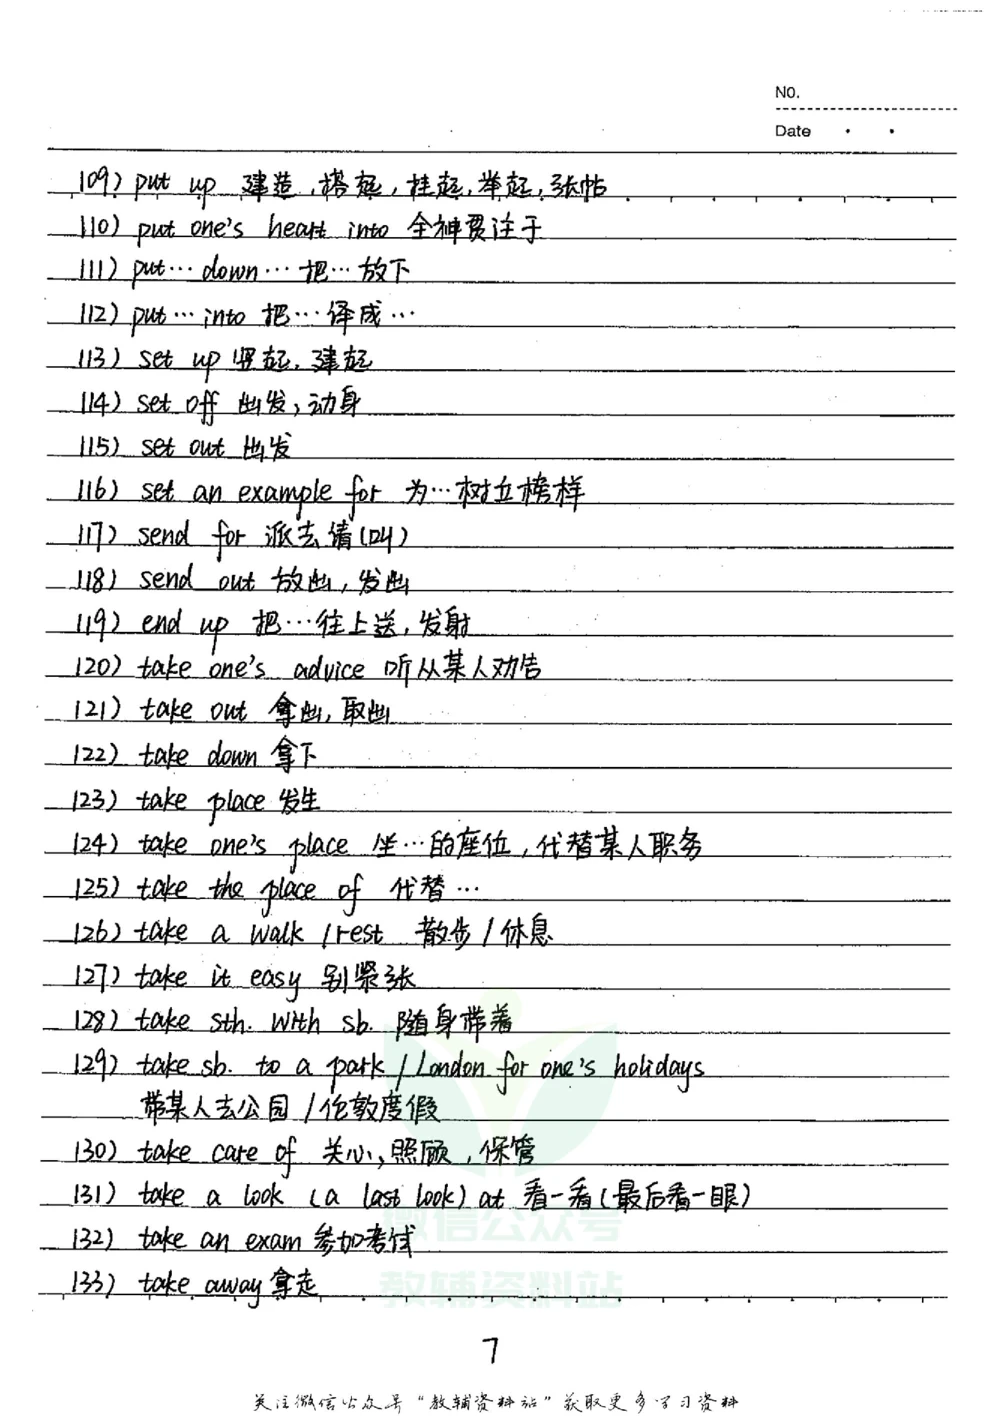 NO.
Date
109) put up 建造,搭起,挂起,举起,张帖
110) put one's heart into 全神贯注于
111) put… down… 把…放下
112) put… into 把…译成…
113) set up 竖起,建起
114) set off 出发,动身
115) set out 出发
116) set an example for 为…树立榜样
117) send for 派去请(叫)
118) send out 放出,发出
119) end up 把…往上送,发射
120) take one's advice 听从某人劝告
121) take out 拿出,取出
122) take down 拿下
123) take place 发生
124) take one's place 坐…的座位,代替某人职务
125) take the place of 代替…
126) take a walk /rest 散步/休息
127) take it easy 别紧张
128) take sth. with sb. 随身带着
129) take sb. to a park/London for one's holidays
带某人去公园/伦敦度假
130) take care of 关心,照顾,保管
131) take a look (a last look) at 看一看(最后看一眼)
132) take an exam 参加考试
133) take away 拿走
微信公众号
教辅资料站
7
关注微信公众号“教辅资料站”获取更多学习资料